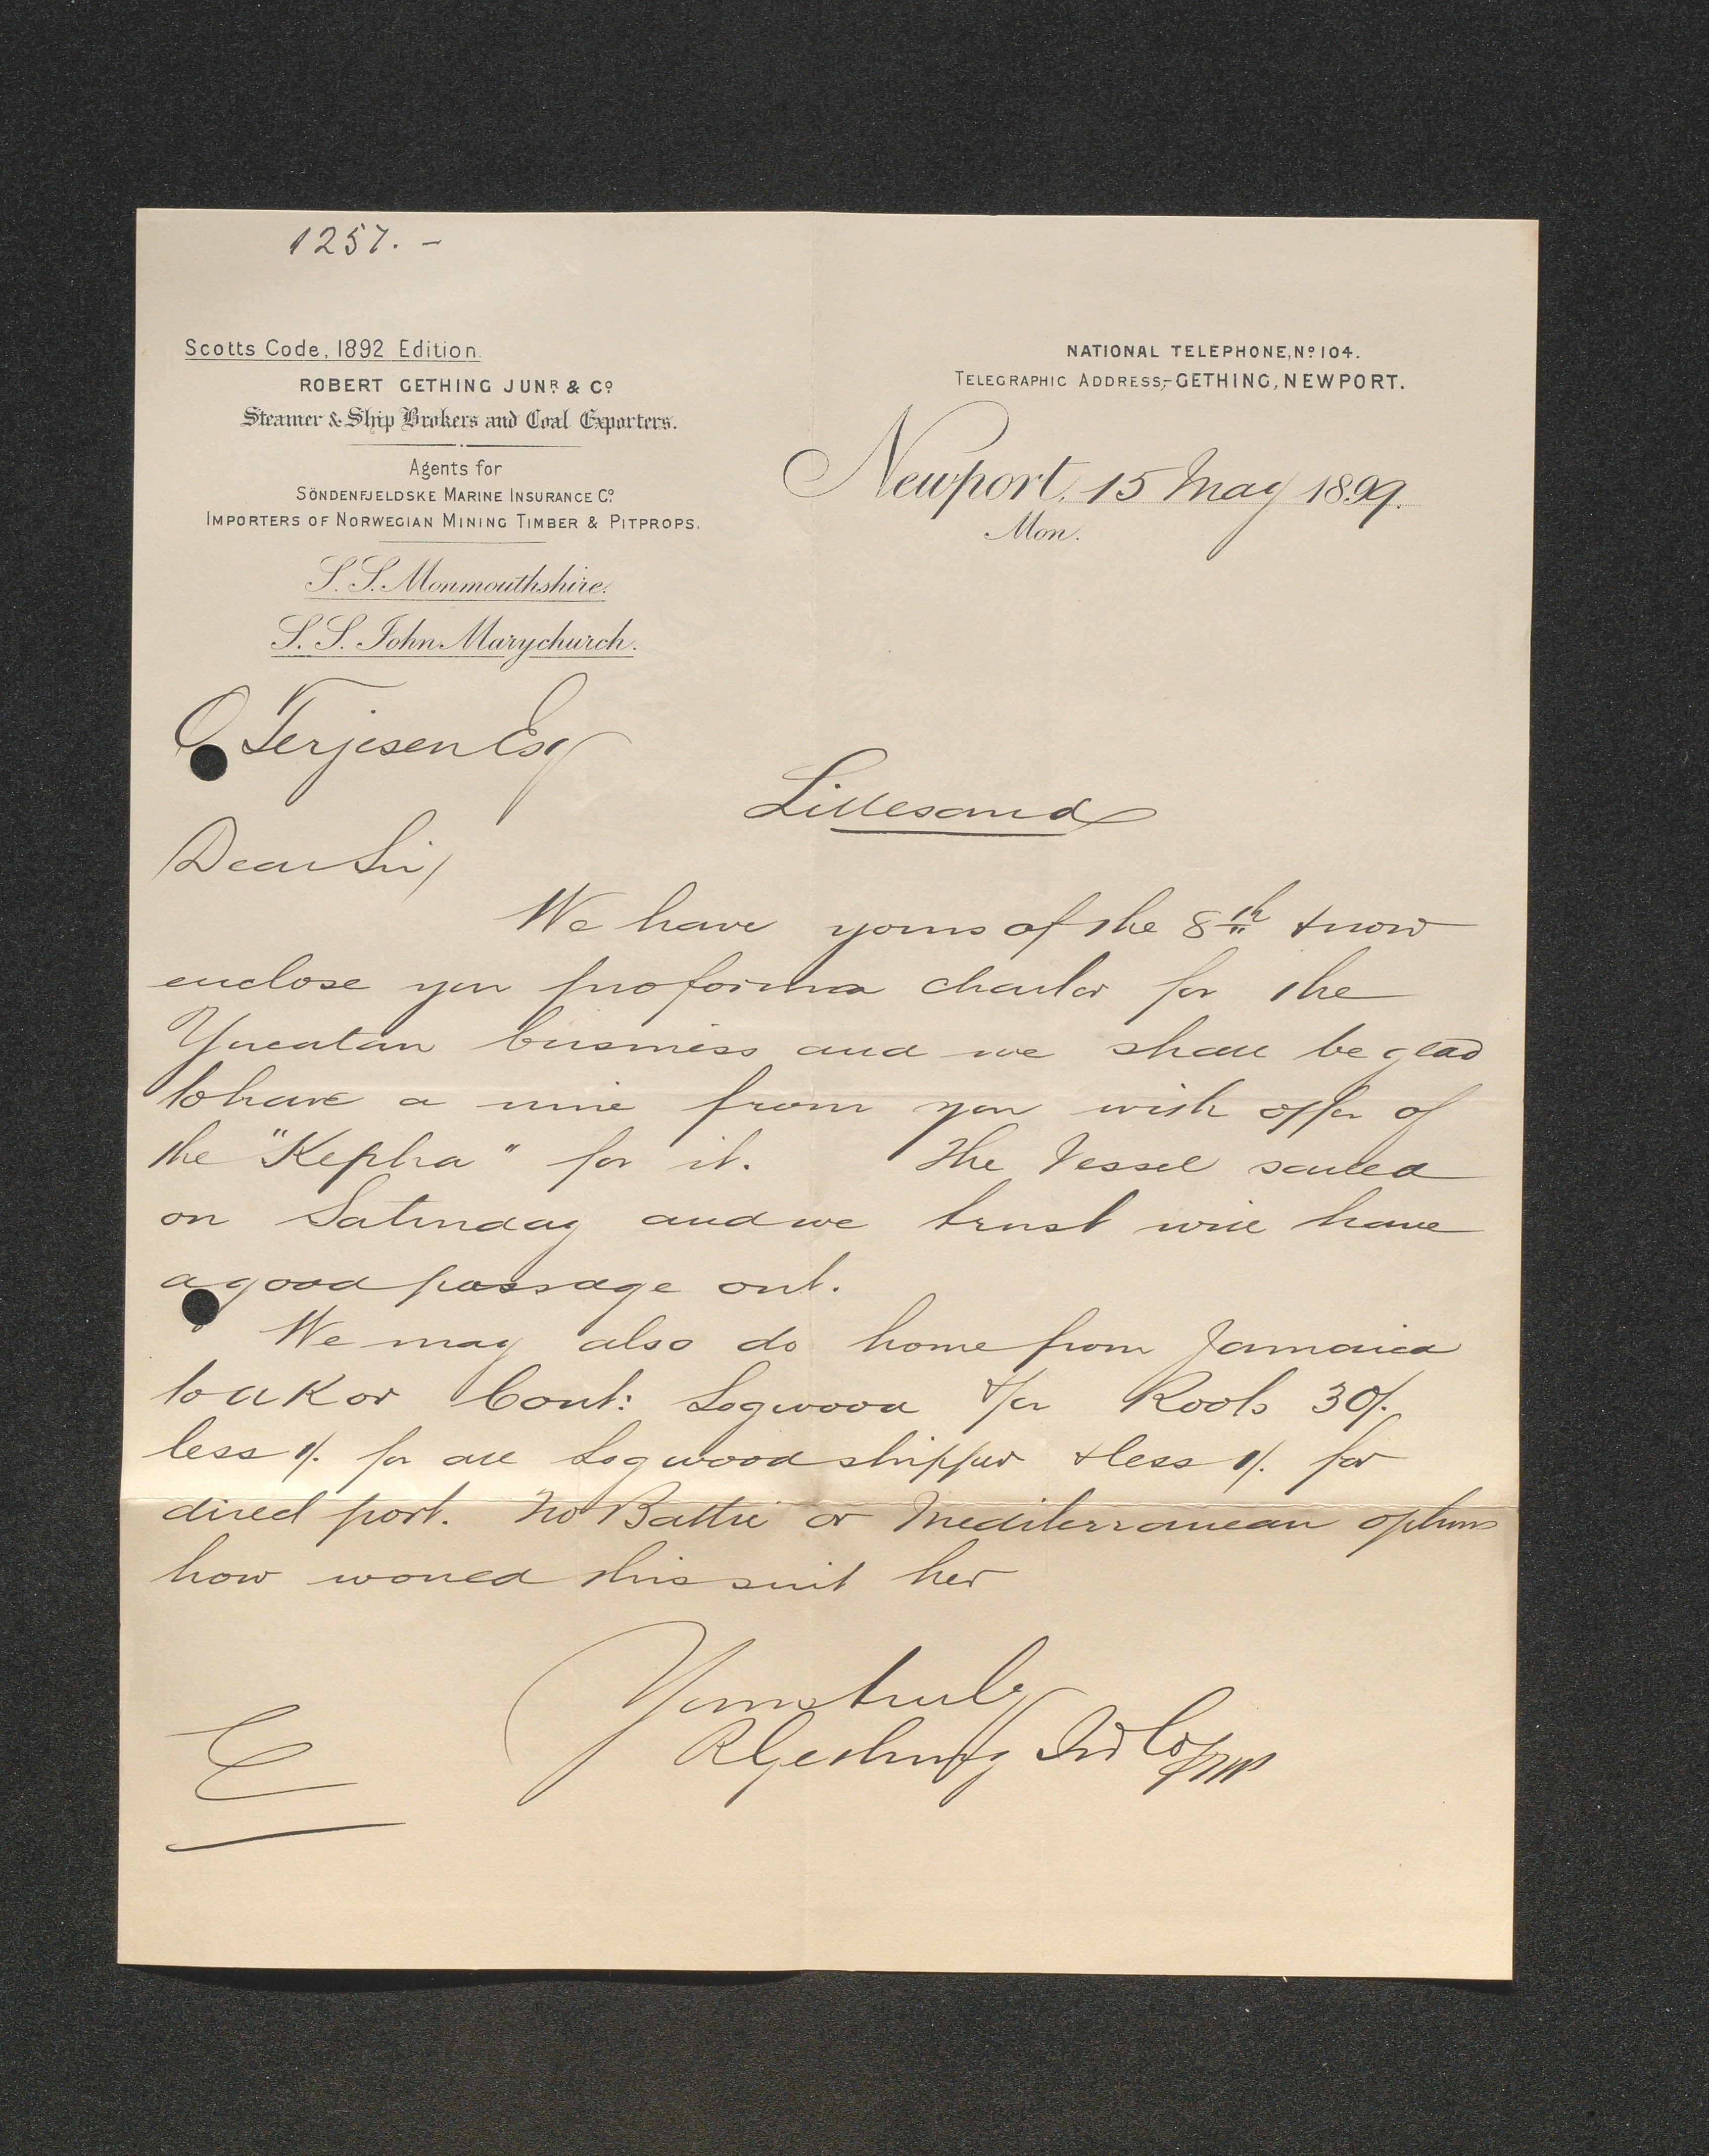 1257. -
Scotts Code, 1892 Edition.
ROBERT GETHING JUNR & Co
Steamer & Ship Brokers and Coal Exporters.
Agents for
SÖNDENFJELDSKE MARINE INSURANCE Co
IMPORTERS OF NORWEGIAN MINING TIMBER & PITPROPS.
S.S. Monmouthshire.
S.S. John Marychurch.
NATIONAL TELEPHONE, No 104.
TELEGRAPHIC ADDRESS;- GETHING, NEWPORT.
Newport, 15 May 1899.
Mon.
O Terjesen Esq
Lillesand
Dear Sir/
We have yours of the 8th & now
enclose you proforma charter for the
Yucatan business and we shall be glad
to have a wire from you with offer of
the "Kepha" for it. The Vessel sailed
on Saturday and we trust will have
a good passage out.
We may also do home from Jamaica
to UK or Cont: Logwood &/or Roots 30/.
less 1/. for all Logwood shipped & less 1/. for
direct port. No Baltic or Mediterranean options
how would this suit her
Yours truly
R Gething Jr & Co